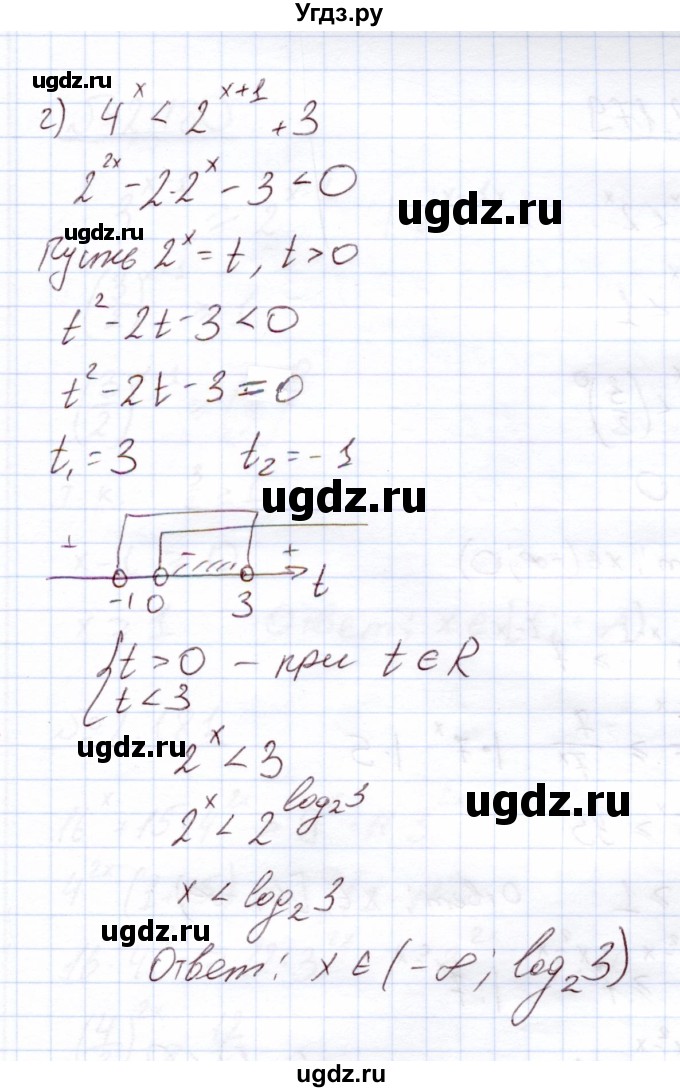 Угдз.ру
ugdz.ru
г) 4^x < 2^{x+1} + 3
2^{2x} - 2·2^x - 3 < 0
ugdz.ru
ugdz.ru
Пусть 2^x = t, t > 0
t^2 - 2t - 3 < 0
t^2 - 2t - 3 = 0
t_1 = 3 t_2 = -1
ugdz.ru
+ - + t
-1 0 3
{ t > 0 - при t ∈ R
t < 3
ugdz.ru
2^x < 3
ugdz.ru
2^x < 2^{log_2 3}
x < log_2 3
ugdz.ru
Ответ: x ∈ (-∞; log_2 3)
ugdz.ru